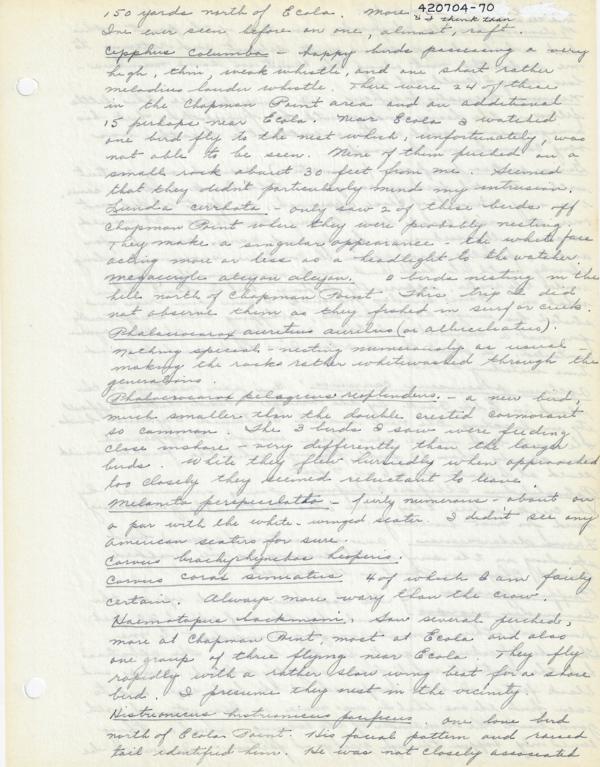 150 yards north of Ecola. More
420704-70
& I think than
I've ever seen before on one, almost, raft.
Cepphus columba - happy birds possessing a very
high, thin, weak whistle, and one short rather
melodius louder whistle. There were 24 of these
in the Chapman Point area and an additional
15 perhaps near Ecola. Near Ecola I watched
one bird fly to the nest which, unfortunately, was
not able to be seen. Nine of them perched on a
small rock about 30 feet from me. Seemed
that they didn't particularly mind my intrusion.
Lunda cirrhata. - only saw 2 of these birds off
Chapman Point where they were probably nesting.
They make a singular appearance - the white face
acting more or less as a headlight to the watcher.
Megaceryle alcyon alcyon. 0 birds nesting in the
hill north of Chapman Point. This trip I did
not observe them as they fished in surf or creek.
Phalacrocorax auritus auritus (or albociliatus).
Nothing special - nesting numerously as usual -
making the rocks rather whitewashed through the
generations.
Phalacrocorax pelagicus resplendens. - a new bird,
much smaller than the double crested cormorant
so common. The 3 birds I saw were feeding
close inshore - very differently than the larger
birds. While they flew hurriedly when approached
too closely they seemed reluctant to leave.
Melanita perspicillata - fairly numerous - about on
a par with the white-winged scoter. I didn't see any
American scoters for sure.
Corvus brachyrhynchos hesperis.
Corvus corax sinuatus 4 of which I am fairly
certain. Always more wary than the crow.
Haematopus bachmani. Saw several perched,
more at Chapman Point, most at Ecola and also
one group of three flying near Ecola. They fly
rapidly with a rather slow wing beat for a shore
bird. I presume they nest in the vicinity.
Histrionicus histrionicus pacificus. One lone bird
north of Ecola Point. His facial pattern and raised
tail identified him. He was not closely associated